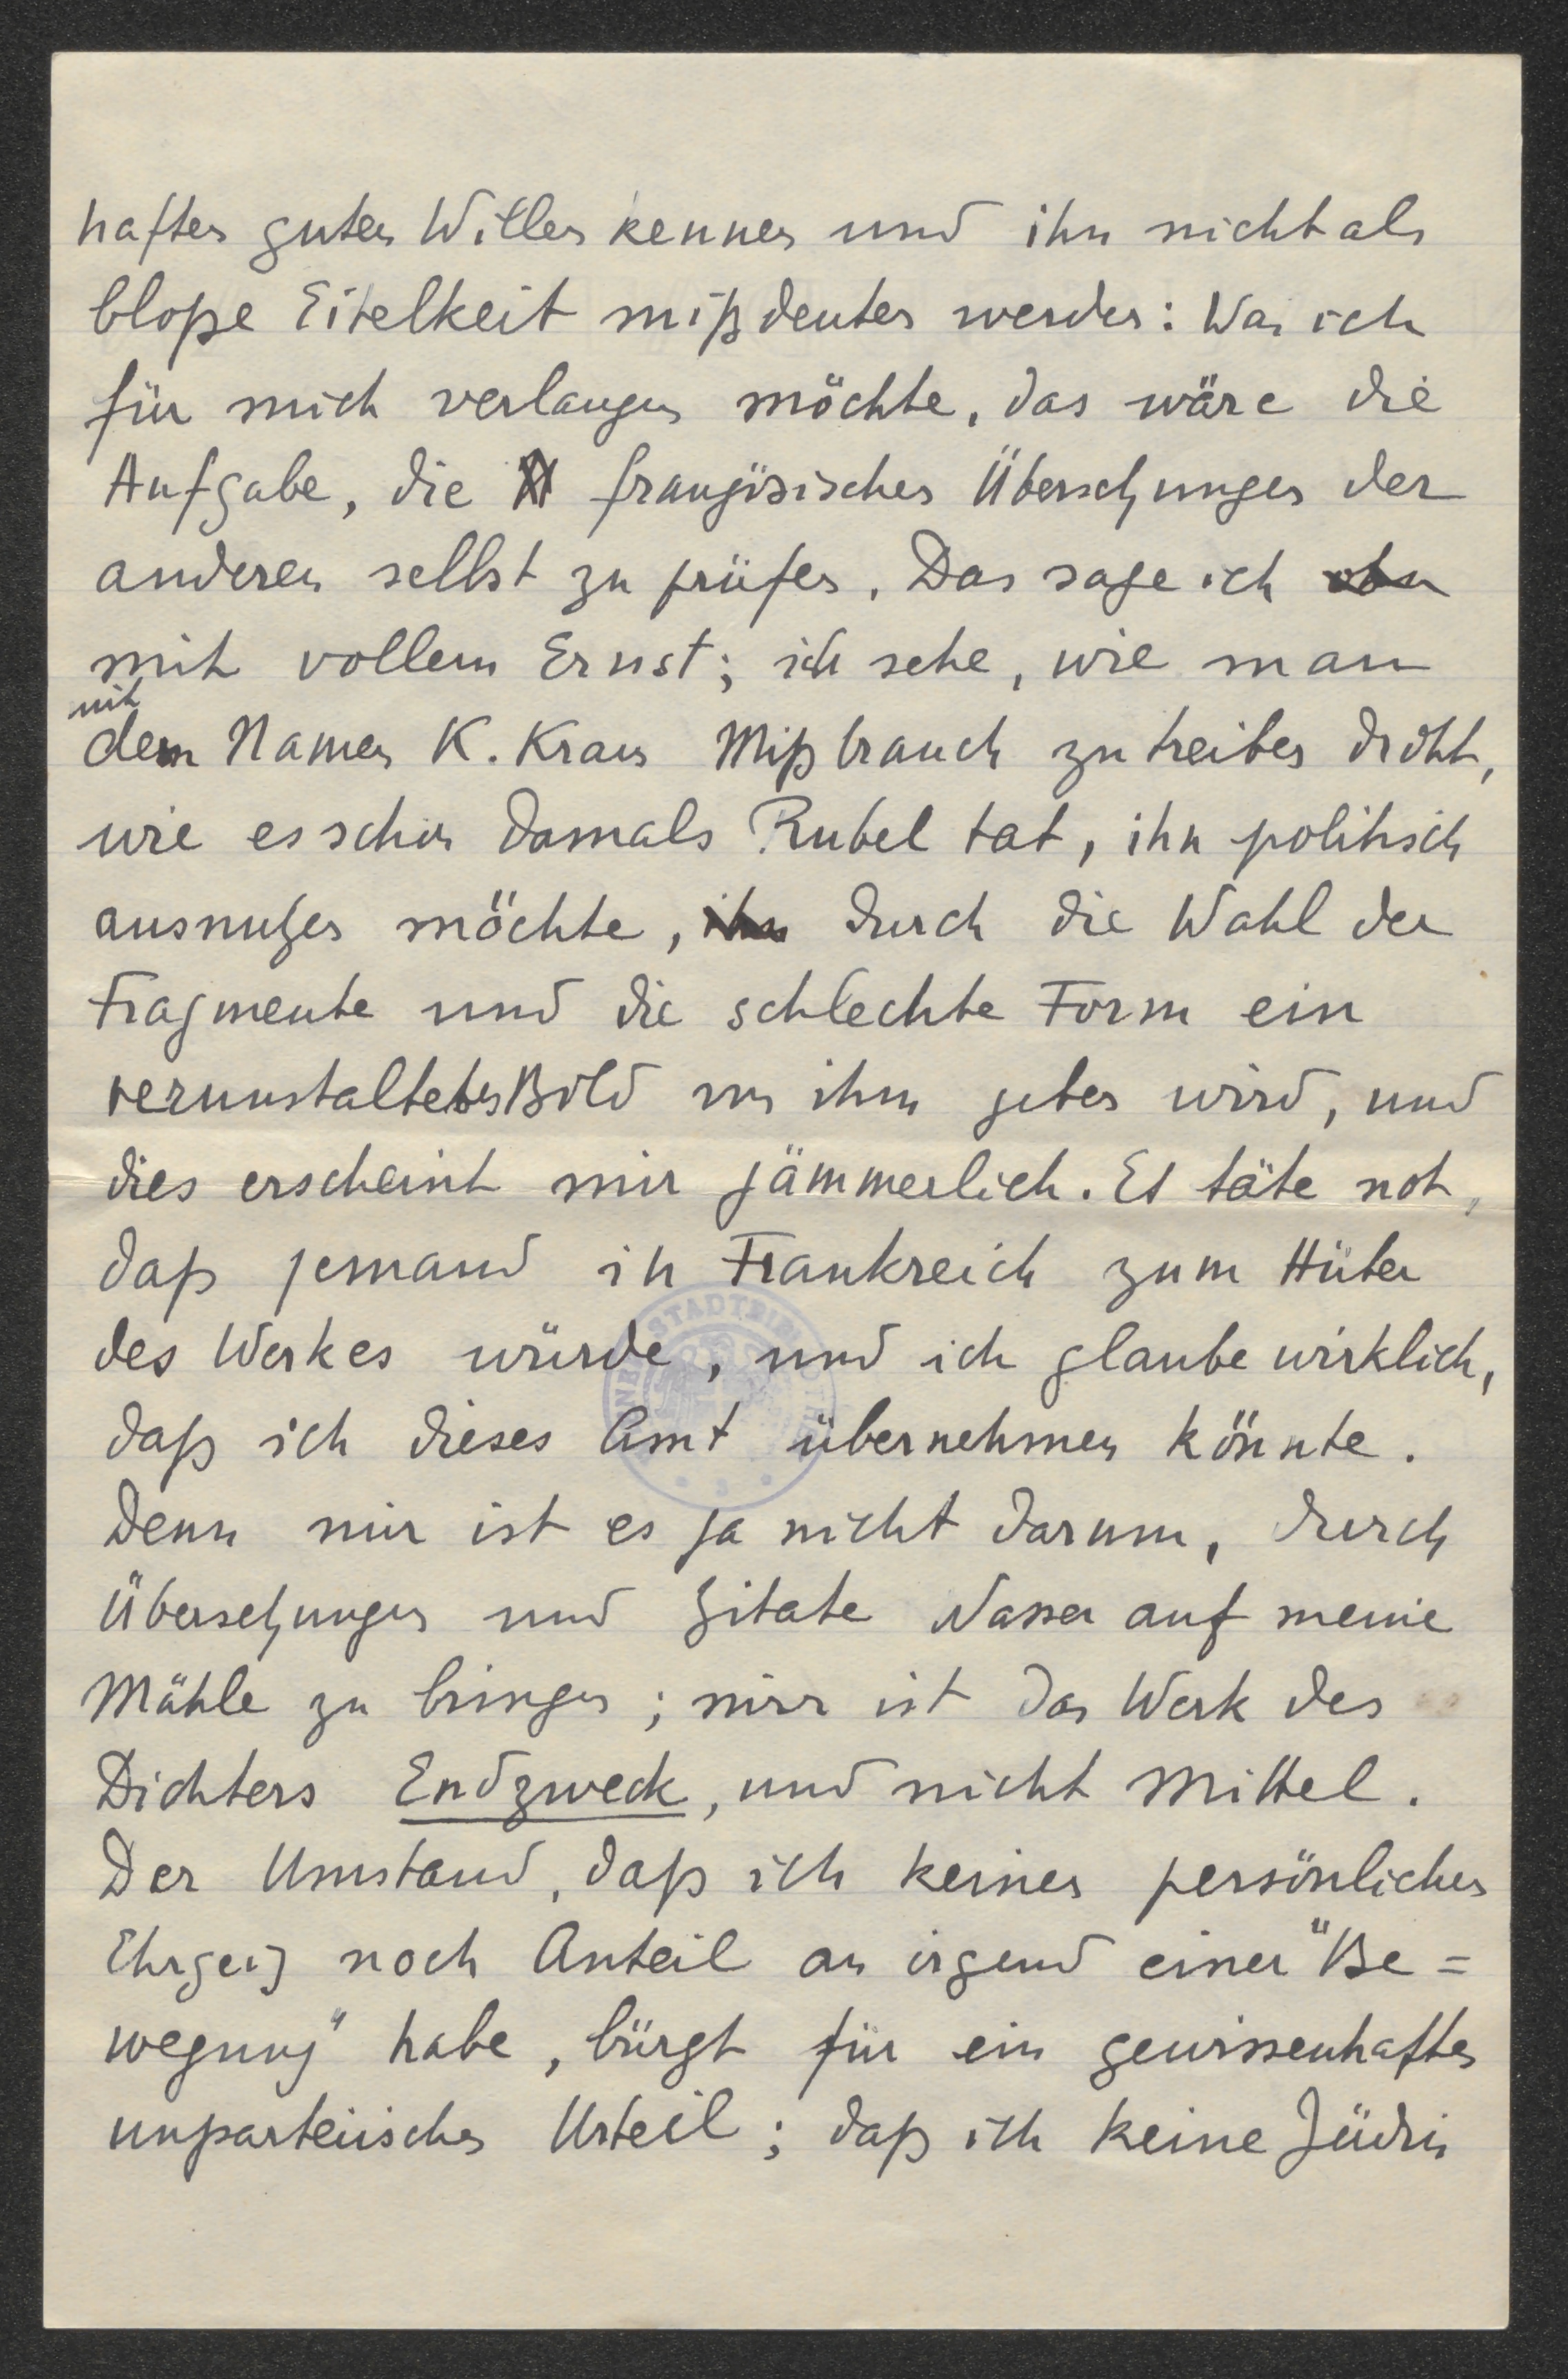 haften guten Willen kennen und ihn nicht als
bloße Eitelkeit mißdeuten werden: Was ich
für mich verlangen möchte, das wäre die
Aufgabe, die französischen Übersetzungen der
anderen selbst zu prüfen. Das sage ich
mit vollem Ernst; ich sehe, wie man
mit
dem Namen K. Kraus Mißbrauch zu treiben droht,
wie es schon damals Rubel tat, ihn politisch
ausnutzen möchte, ihn durch die Wahl der
Fragmente und die schlechte Form ein
verunstaltetes Bild von ihm geben wird, und
dies erscheint mir jämmerlich. Es täte not,
daß jemand in Frankreich zum Hüter
des Werkes würde, und ich glaube wirklich,
daß ich dieses Amt übernehmen könnte.
Denn mir ist es ja nicht darum, durch
Übersetzungen und Zitate Wasser auf meine
Mühle zu bringen; mir ist das Werk des
Dichters Endzweck, und nicht Mittel.
Der Umstand, daß ich keinen persönlichen
Ehrgeiz noch Anteil an irgend einer "Be=
wegung" habe, bürgt für ein gewissenhaftes
unparteiisches Urteil; daß ich keine Jüdin